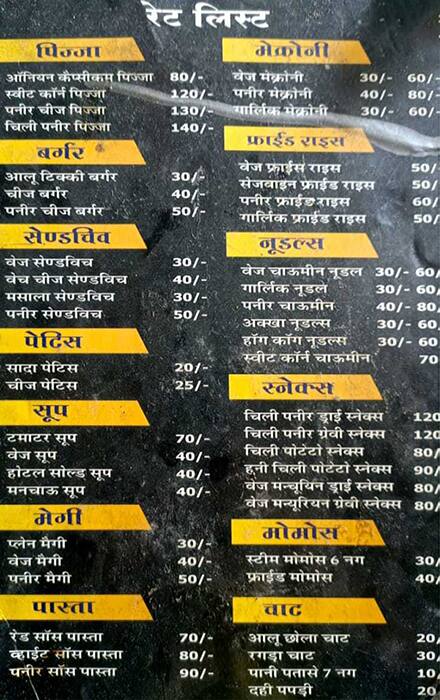 रेट लिस्ट
पिज्जा
ऑनियन कैप्सीकम पिज्जा 80/-
स्वीट कॉर्न पिज्जा 120/-
पनीर चीज पिज्जा 130/-
चिली पनीर पिज्जा 140/-
बर्गर
आलू टिक्की बर्गर 30/-
चीज बर्गर 40/-
पनीर चीज बर्गर 50/-
सेण्डविच
वेज सेण्डविच 30/-
वेच चीज सेण्डविच 40/-
मसाला सेण्डविच 30/-
पनीर सेण्डविच 50/-
पेटिस
सादा पेटिस 20/-
चीज पेटिस 25/-
सूप
टमाटर सूप 70/-
वेज सूप 40/-
होटल सोल्ड सूप 40/-
मनचाऊ सूप 40/-
मेगी
प्लेन मैगी 30/-
वेज मैगी 40/-
पनीर मैगी 50/-
पास्ता
रेड सॉस पास्ता 70/-
व्हाईट सॉस पास्ता 80/-
पनीर सॉस पास्ता 90/-
मेक्रोनी
वेज मेक्रोनी 30/- 60/-
पनीर मेक्रोनी 40/- 80/-
गार्लिक मेक्रोनी 30/- 60/-
फ्राईड राइस
वेज फ्राईस राइस 50/-
सेजवाइन फ्राईड राइस 50/
पनीर फ्राईड राइस 60/
गार्लिक फ्राईड राइस 50/
नूडल्स
वेज चाऊमीन नूडल 30/- 60/
गार्लिक नूडल 30/- 60/
पनीर चाऊमीन 40/- 80/
अक्खा नूडल्स 30/- 60
हॉग कॉग नूडल्स 30/- 60
स्वीट कॉर्न चाऊमीन 70
स्नेक्स
चिली पनीर ड्राई स्नेक्स 120
चिली पनीर ग्रेवी स्नेक्स 120
चिली पोटेटो स्नेक्स 80/
हनी चिली पोटेटो स्नेक्स 90/
वेज मन्चूरियन ड्राई स्नेक्स 80/
वेज मन्यूरियन ग्रेवी स्नेक्स 80/
मोमोस
स्टीम मोमोस 6 नग 30/
फ्राईड मोमोस 40/
चाट
आलू छोला चाट 20/
रगड़ा चाट 30/
पानी पतासे 7 नग 10/
दही पपड़ी 20/